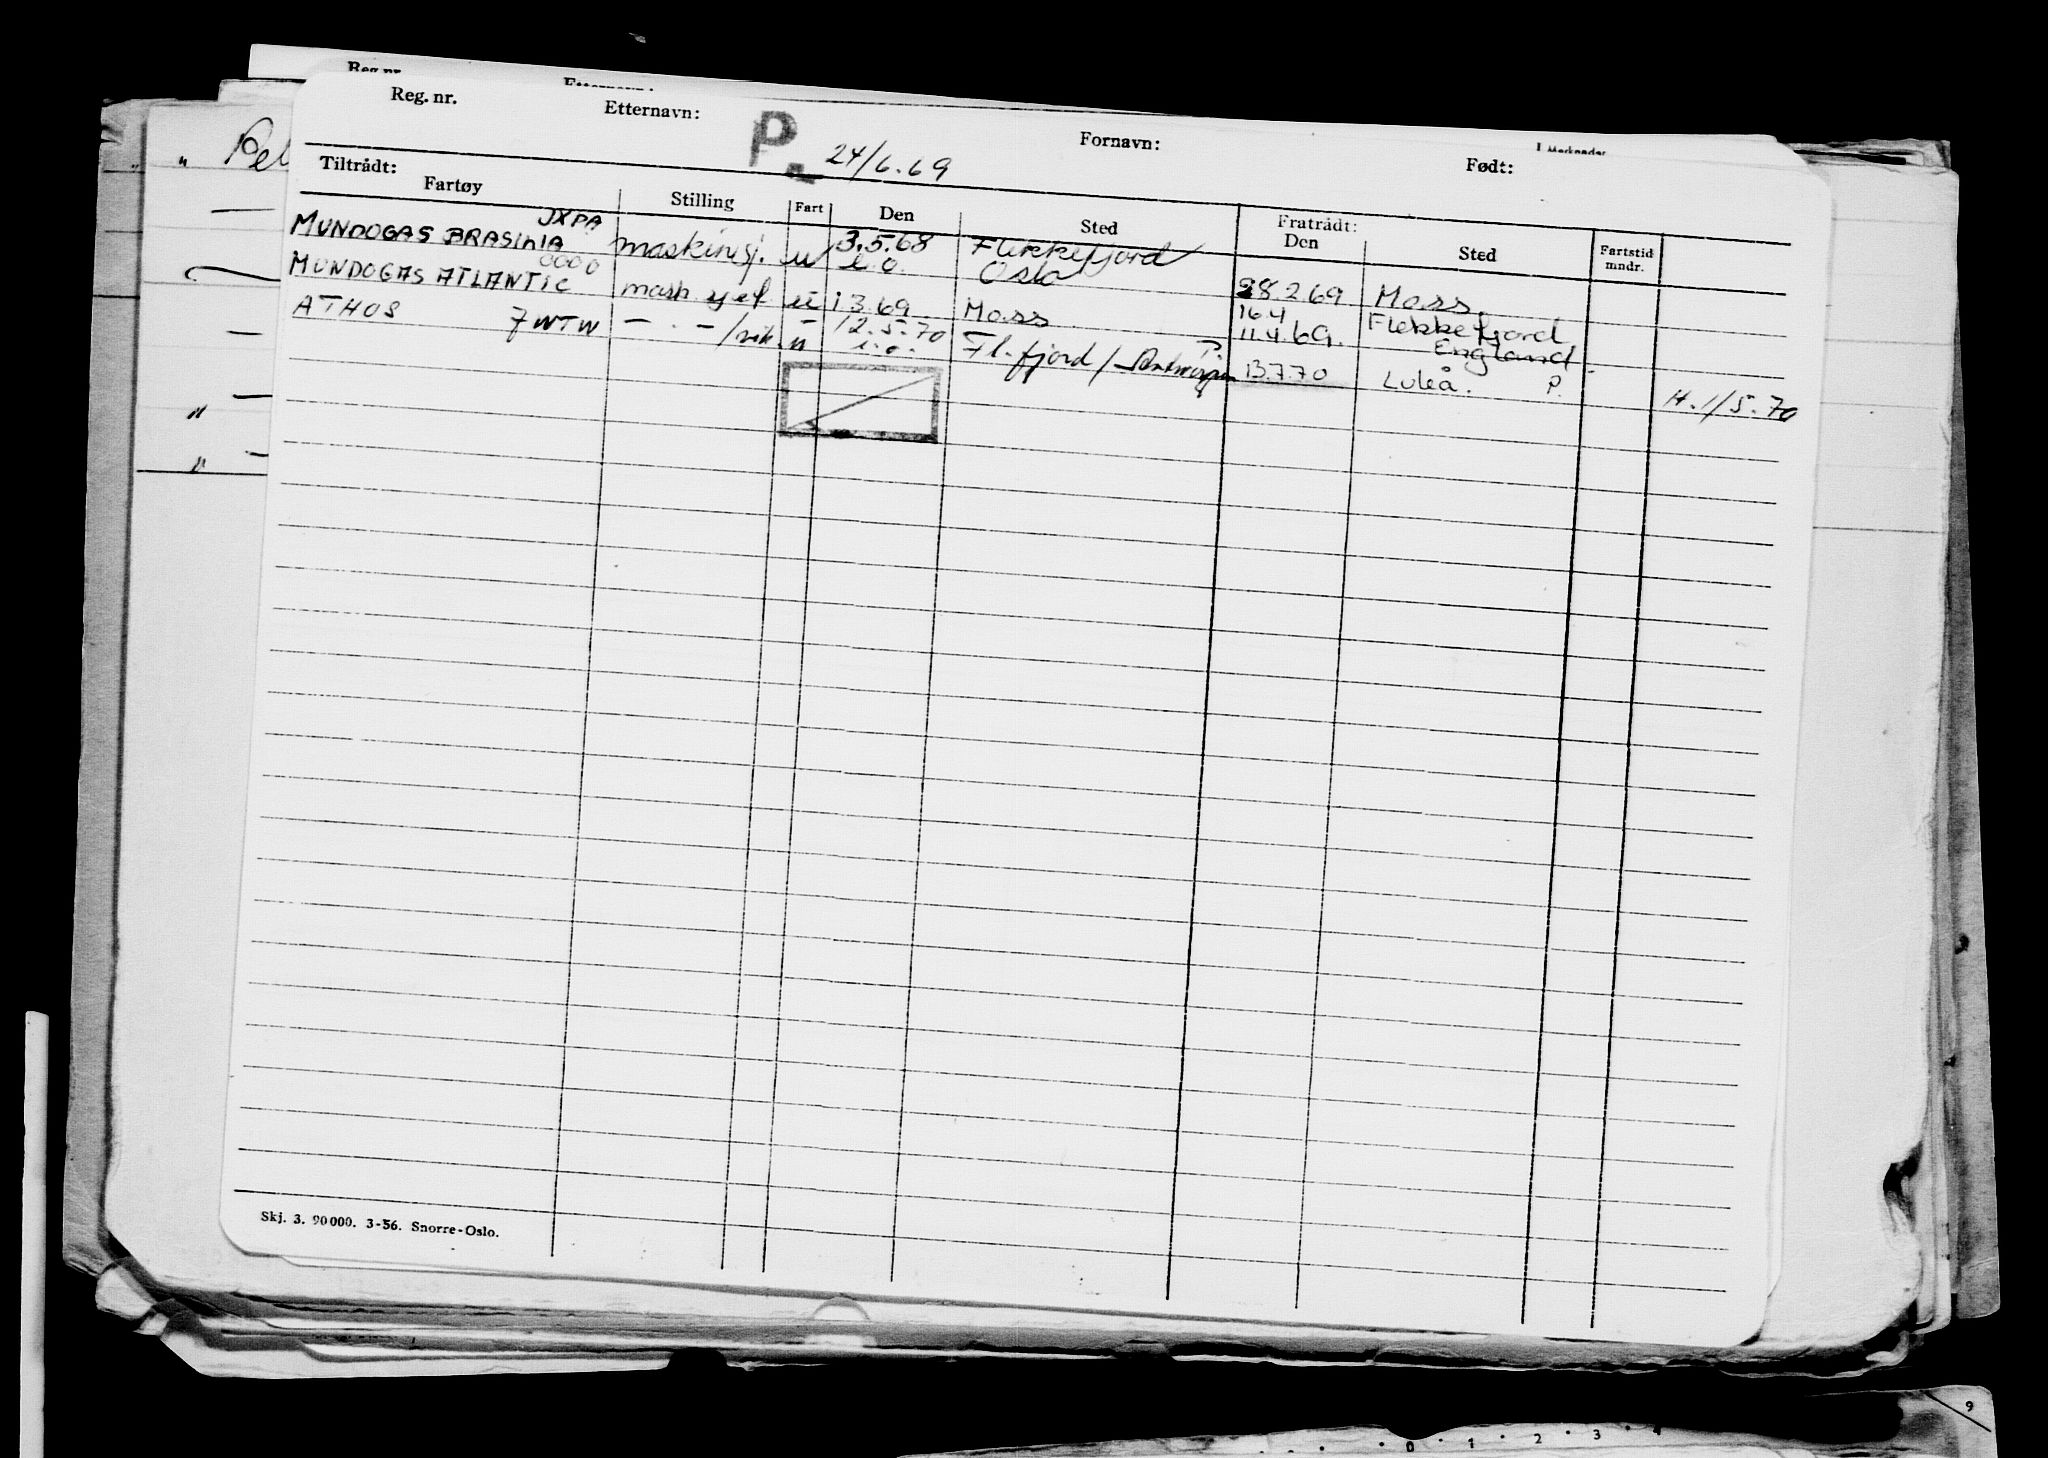 Reg. nr. Etternavn: Fornavn: Født:
P. 24/6.69
Tiltrådt: Fratrådt:
Fartøy Stilling Fart Den Sted Den Sted Fartstid mndr.
JXPA
MUNDOGAS BRASILIA maskinsj. u 3.5.68 Flekkefjord
e.o. Oslo 28.2.69 Moss.
0000
MUNDOGAS ATLANTIC mask. sjef u 1 3.69. Moss 16.4 Flekkefjord
11.4.69. England.
ATHOS 7WTW — . — / u 12.5.70 Fl.fjord / 13.7.70 Luleå. P. H. 1/5.70
e.o.
Skj. 3. 90 000. 3-56. Snorre-Oslo.
0 1 2 3 4
9